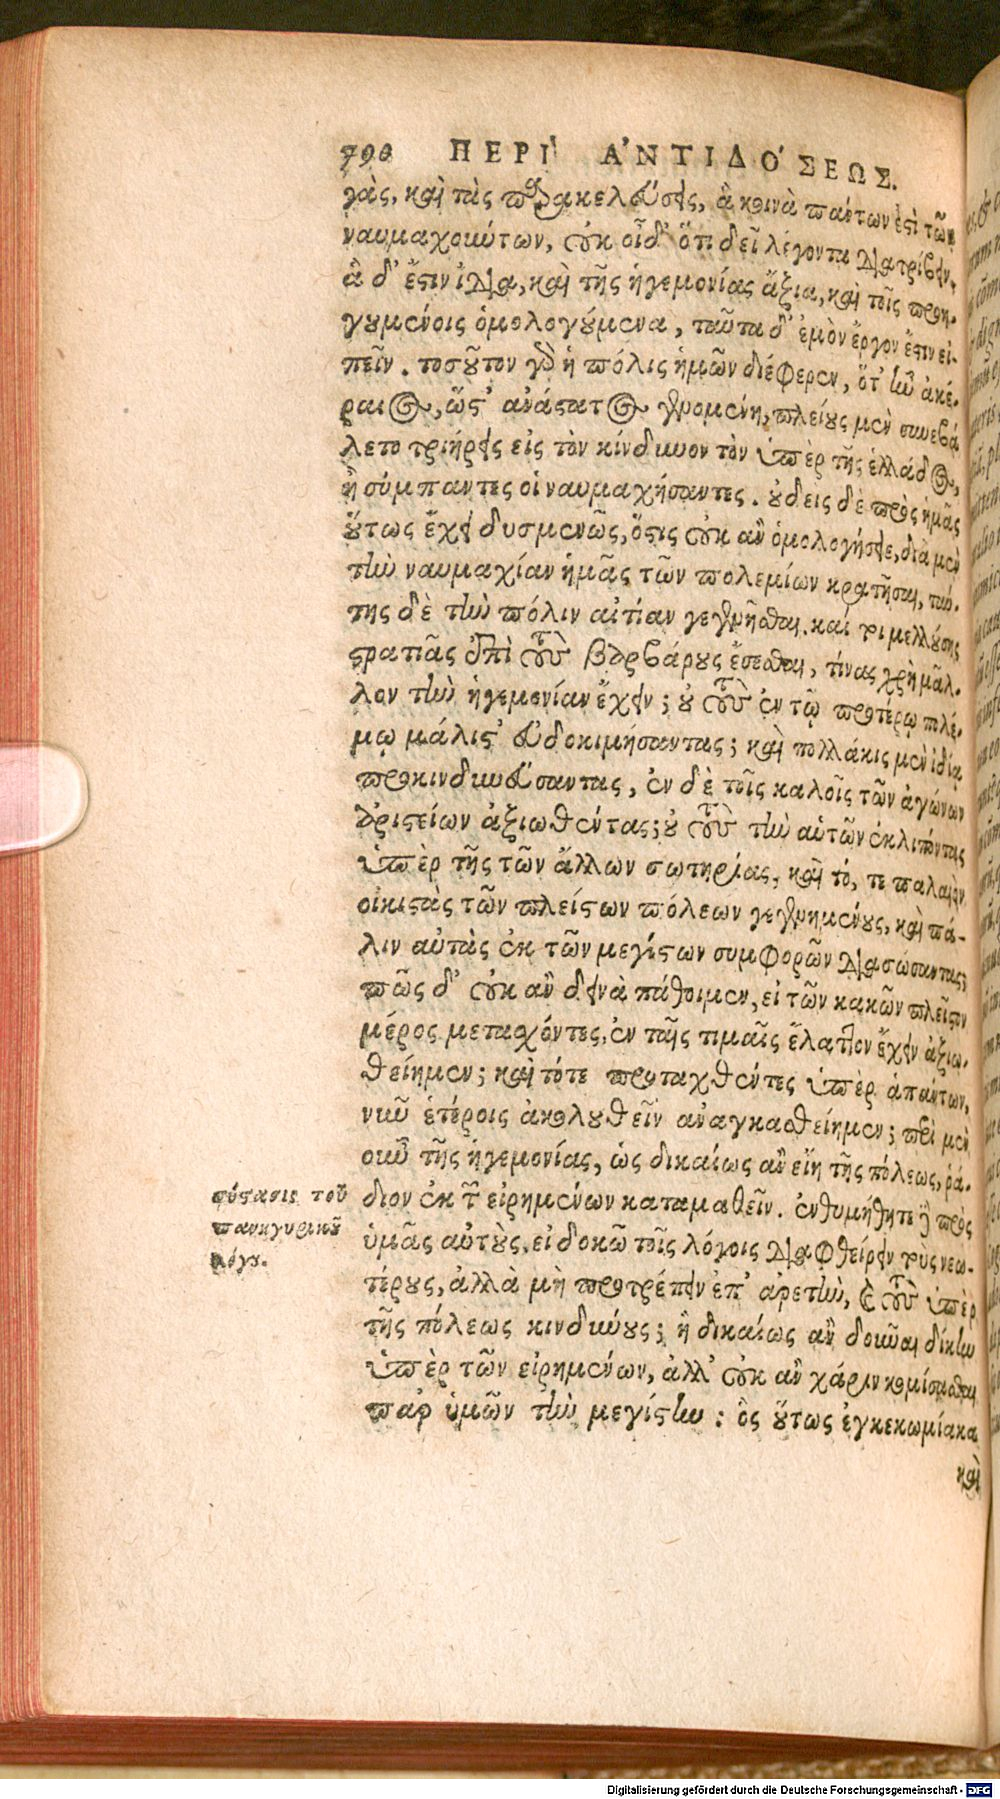 790 ΠΕΡΙ ἈΝΤΙΔΌΣΕΩΣ.
γὰς, καὶ τὰς παρακελεύσεις, ἃ κοινὰ πάντων ἐστὶ τῶν
ναυμαχούντων, οὐκ οἶδ' ὅτι δεῖ λέγοντα διατρίβειν,
ἃ δ' ἔστιν ἴδια, καὶ τῆς ἡγεμονίας ἄξια, καὶ τοῖς προη-
γουμένοις ὁμολογούμενα, ταῦτα δ' ἐμὸν ἔργον ἔστιν εἰ-
πεῖν. τοσοῦτον γὰρ ἡ πόλις ἡμῶν διέφερεν, ὅτ' ἦν ἀκέ-
ραιος, ὥστ' ἀνάστατος γενομένη, πλείους μὲν συνεβά
λετο τριήρεις εἰς τὸν κίνδυνον τὸν ὑπὲρ τῆς ἑλλάδος,
ἢ σύμπαντες οἱ ναυμαχήσαντες. οὐδεις δὲ πρὸς ἡμᾶς
οὕτως ἔχει δυσμενῶς, ὅστις οὐκ ἂν ὁμολογήσειε, διὰ μὲν
τὴν ναυμαχίαν ἡμᾶς τῶν πολεμίων κρατῆσαι, ταύ-
της δὲ τὴν πόλιν αἰτίαν γεγενῆσθαι. καί τοι μελλούσης
στρατιᾶς ἐπὶ τοὺς βαρβάρους ἔσεσθαι, τίνας χρὴ μᾶλ-
λον τὴν ἡγεμονίαν ἔχειν; οὐ τοὺς ἐν τῷ προτέρῳ πολέ-
μῳ μάλιστ' εὐδοκιμήσαντας; καὶ πολλάκις μὲν ἰδίᾳ
προκινδυνεύσαντας, ἐν δὲ τοῖς καλοῖς τῶν ἀγώνων
ἀριστείων ἀξιωθέντας; οὐ τοὺς τὴν αὑτῶν ἐκλιπόντας
ὑπὲρ τῆς τῶν ἄλλων σωτηρίας, καὶ τό, τε παλαιὸν
οἰκιστὰς τῶν πλείστων πόλεων γεγενημένους, καὶ πά-
λιν αὐτὰς ἐκ τῶν μεγίστων συμφορῶν διασώσαντας;
πῶς δ' οὐκ ἂν δεινὰ πάθοιμεν, εἰ τῶν κακῶν πλεῖστον
μέρος μετασχόντες, ἐν ταῖς τιμαῖς ἔλαττον ἔχειν ἀξιω-
θείημεν; καὶ τότε προταχθέντες ὑπὲρ ἁπάντων,
νῦν ἑτέροις ἀκολουθεῖν ἀναγκασθείημεν; περὶ μὲν
οὖν τῆς ἡγεμονίας, ὡς δικαίως ἂν εἴη τῆς πόλεως, ῥά-
διον ἐκ τῶν εἰρημένων καταμαθεῖν. ἐνθυμήθητε δὲ πρὸς
ὑμᾶς αὐτοὺς, εἰ δοκῶ τοῖς λόγοις διαφθείρειν τοὺς νεω-
τέρους, ἀλλὰ μὴ προτρέπειν ἐπ' ἀρετὴν, καὶ τοὺς ὑπὲρ
τῆς πόλεως κινδύνους; ἢ δικαίως ἂν δοῦναι δίκην
ὑπὲρ τῶν εἰρημένων, ἀλλ' οὐκ ἂν χάριν κομίσασθαι
παρ ὑμῶν τὴν μεγίστην: ὃς οὕτως ἐγκεκωμίακα
καὶ
σύστασις τοῦ
πανηγυρικοῦ
λόγου.
Digitalisierung gefördert durch die Deutsche Forschungsgemeinschaft - DFG